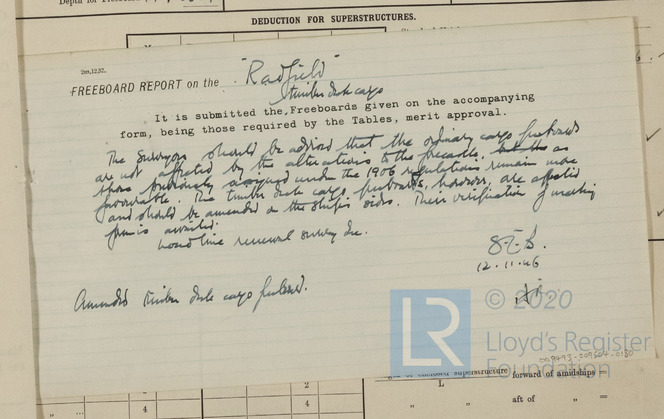 DEDUCTION FOR SUPERSTRUCTURES.
2m,12,37.
FREEBOARD REPORT on the "Radfield"
timber deck cargo
It is submitted the Freeboards given on the accompanying
form, being those required by the Tables, merit approval.
The Surveyors should be advised that the ordinary cargo freeboards
are not affected by the alterations to the forecastle, as
those previously assigned under the 1906 regulations remain more
favourable. The timber deck cargo freeboards, however, are affected
and should be amended on the ship's sides. Their verification of marking
form is awaited.
Load line renewal survey due.
12.11.46
Amended timber deck cargo freeboard.
© 2020
LR
Lloyd's Register
Foundation
009493-009504-0180
superstructure forward of amidships =
L
" aft of " =
2
" 4
4